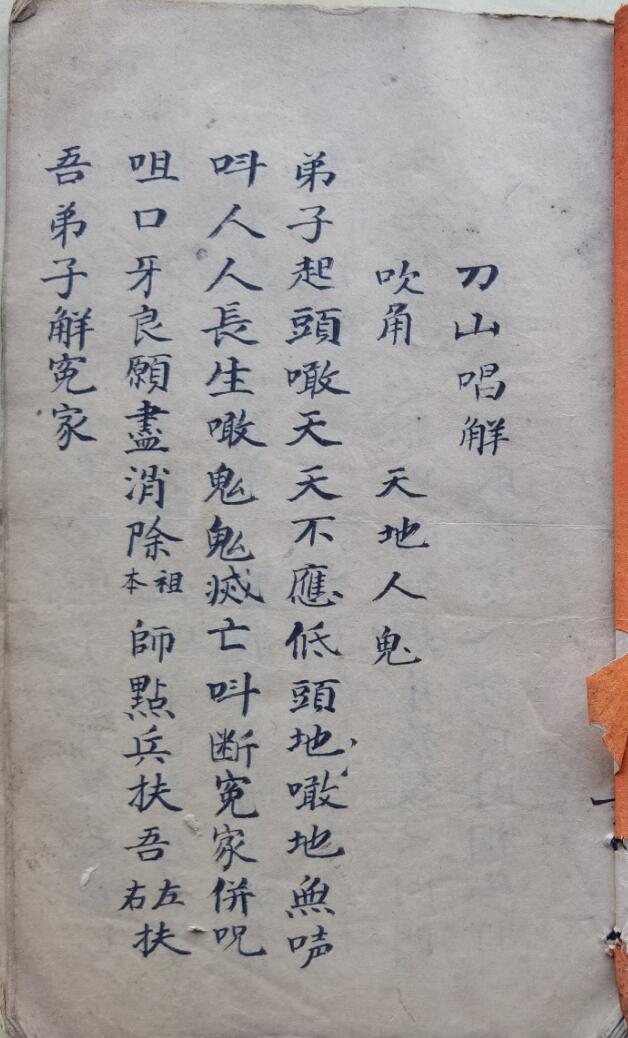 刀山唱解
吹角　天地人鬼
弟子起頭噉天天不應低頭地噉地無声
呌人人長生噉鬼鬼滅亡呌断冤家併呪
咀口牙良願盡消除祖本師點兵扶吾左右扶
吾弟子解冤家